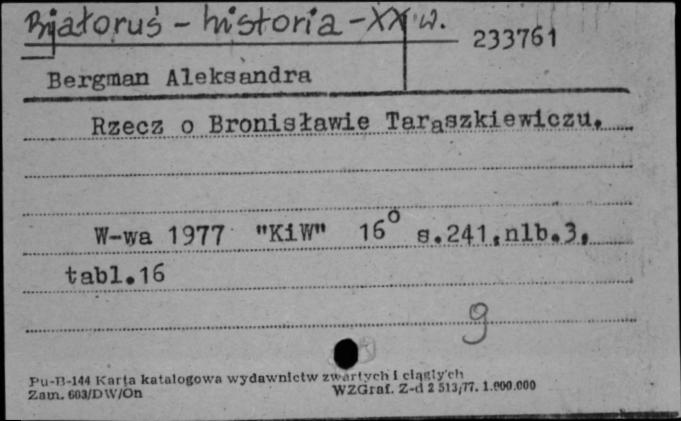 Białoruś - historia - XX w.
233761
Bergman Aleksandra
Rzecz o Bronisławie Taraszkiewiczu.
W-wa 1977 "KiW" 16° s.241,nlb.3,
tabl.16
g
Pu-B-144 Karta katalogowa wydawnictw zwartych i ciągłych
Zam. 603/DW/On WZGraf. Z-d 2 513/77. 1.000.000